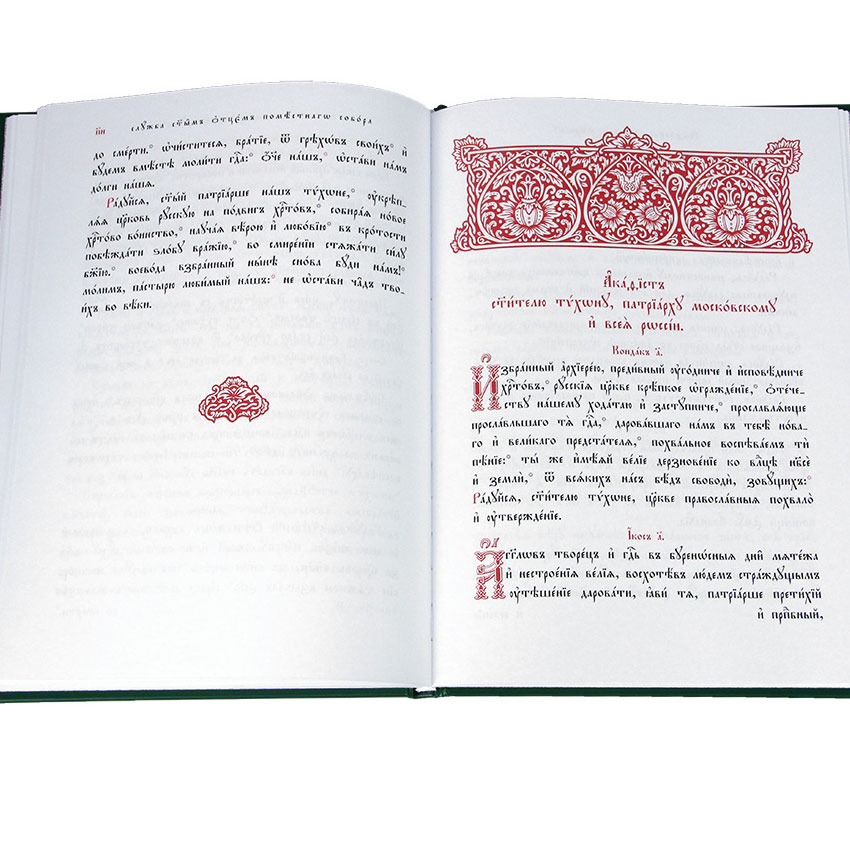 и҃н слꙋ́жба ст҃ы̑мъ ѻ҆тцє́мъ помѣ́стнагѡ собо́ра
до сме́рти. ѡ҆чи́ститесѧ, бра́тїе, ѿ грѣхѡ́въ свои́хъ и҆
бꙋ́демъ вмѣ́стѣ моли́ти гдⷭ҇а: ѻ҆́ч҃е на́шъ, ѡ҆ста́ви на́мъ
до́лги на́шѧ.
Ра́дꙋйсѧ, ст҃ы́й патрїа́рше на́шъ тѵ́хѡне, ᲂу҆крѣп-
лѧ́ѧ цр҃ковь рꙋ́сскꙋю на по́двигъ хрⷭ҇то́въ, собира́ѧ но́вое
хрⷭ҇то́во во́инство, наꙋча́ѧ вѣ́рою и҆ любо́вїю въ кро́тости
побѣжда́ти ѕло́бꙋ вра́жїю, во смире́нїи стѧжа́ти си́лꙋ
бж҃їю. воево́да взбра́нный ны́нѣ сно́ва бꙋ́ди на́мъ!
мо́лимъ, па́стырю люби́мый на́шъ: не ѡ҆ста́ви ча̑дъ тво-
и́хъ во вѣ́ки.
А҆ка́ѳїстъ
ст҃и́телю тѵ́хѡнꙋ, патрїа́рхꙋ моско́вскомꙋ
и҆ всеѧ̀ рѡссі́и.
Конда́къ а҃.
И҆збра́нный а҆рхїере́ю, преди́вный ᲂу҆го́дниче и҆ и҆сповѣ́дниче
хрⷭ҇то́въ, рꙋ́сскїѧ цр҃кве крѣ́пкое ѡ҆гражде́нїе, ѻ҆те́че-
ствꙋ на́шемꙋ хода́таю и҆ застꙋ́пниче, прославлѧ́юще
просла́вльшаго тѧ̀ гдⷭ҇а, дарова́вшаго на́мъ въ тебѣ̀ но́ва-
го и҆ вели́каго предста́телѧ, похва́льное воспѣва́емъ тѝ
пѣ́нїе: ты́ же и҆мѣ́ѧй ве́лїе дерзнове́нїе ко влⷣцѣ нб҃сѐ
и҆ землѝ, ѿ всѧ́кихъ на́съ бѣ́дъ свободѝ, зовꙋ́щихъ:
Ра́дꙋйсѧ, ст҃и́телю тѵ́хѡне, цр҃кве правосла́вныѧ похвало̀
и҆ ᲂу҆твержде́нїе.
І҆́косъ а҃.
А҆́гг҃лѡвъ творе́цъ и҆ гдⷭ҇ь въ бꙋ́ренѡсныѧ дни̑ мѧте́жа
и҆ нестрое́нїѧ ве́лїѧ, восхотѣ́въ лю́демъ стра́ждꙋщымъ
ᲂу҆тѣше́нїе дарова́ти, ꙗ҆вѝ тѧ̀, патрїа́рше прети́хїй
и҆ прпⷣбный,